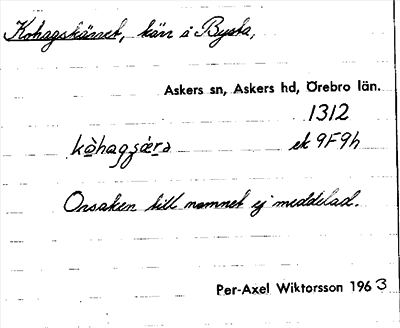 Kohagskärret, kärr i Bysta,
Askers sn, Askers hd, Örebro län.
1312
kò̱hagʂæ̀ṟə ek 9F9h
Orsaken till namnet ej meddelad.
Per-Axel Wiktorsson 1963